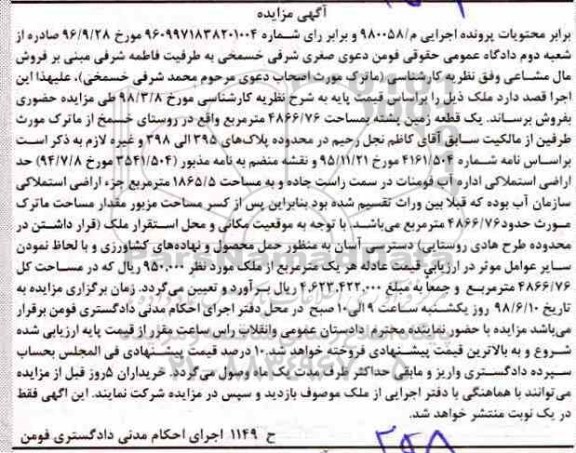 آگهی مزایده
برابر محتویات پرونده اجرایی م/۹۸۰۰۵۸ و برابر رای شماره ۹۶۰۹۹۷۱۸۳۸۲۰۱۰۰۴ مورخ ۹۶/۹/۲۸ صادره از
شعبه دوم دادگاه عمومی حقوقی فومن دعوی صغری شرفی خسمخی به طرفیت فاطمه شرفی مبنی بر فروش
مال مشاعی وفق نظریه کارشناسی (ماترک مورث اصحاب دعوی مرحوم محمد شرفی خسمخی)، علیهذا این
اجرا قصد دارد ملک ذیل را براساس قیمت پایه به شرح نظریه کارشناسی مورخ ۹۸/۳/۸ طی مزایده حضوری
بفروش برساند. یک قطعه زمین پشته بمساحت ۴۸۶۶/۷۶ مترمربع واقع در روستای خسمخ از ماترک مورث
طرفین از مالکیت سابق آقای کاظم نجل رحیم در محدوده پلاک‌های ۳۹۵ الی ۳۹۸ و غیره لازم به ذکر است
براساس نامه شماره ۴۱۶۱/۵۰۴ مورخ ۹۵/۱۱/۲۱ و نقشه منضم به نامه مذبور (۳۵۴۱/۵۰۴ مورخ ۹۴/۷/۸) حد
اراضی استملاکی اداره آب فومنات در سمت راست جاده و به مساحت ۱۸۶۵/۵ مترمربع جزء اراضی استملاکی
سازمان آب بوده که قبلا بین وراث تقسیم شده بود بنابراین پس از کسر مساحت مزبور مقدار مساحت ماترک
مورث حدود۴۸۶۶/۷۶ مترمربع می‌باشد. با توجه به موقعیت مکانی و محل استقرار ملک (قرار داشتن در
محدوده طرح هادی روستایی) دسترسی آسان به منظور حمل محصول و نهاده‌های کشاورزی و با لحاظ نمودن
سایر عوامل موثر در ارزیابی قیمت عادله هر یک مترمربع از ملک مورد نظر ۹۵۰,۰۰۰ ریال که در مساحت کل
۴۸۶۶/۷۶ مترمربع و جمعاً به مبلغ ۴,۶۲۳,۴۲۲,۰۰۰ ریال برآورد و تعیین می‌گردد. زمان برگزاری مزایده به
تاریخ ۹۸/۶/۱۰ روز یکشنبه ساعت ۹ الی۱۰ صبح در محل دفتر اجرای احکام مدنی دادگستری فومن برقرار
می‌باشد مزایده با حضور نماینده محترم دادستان عمومی وانقلاب راس ساعت مقرر از قیمت پایه ارزیابی شده
شروع و به بالاترین قیمت پیشنهادی فروخته خواهد شد. ۱۰ درصد قیمت پیشنهادی فی المجلس بحساب
سپرده دادگستری واریز و مابقی حداکثر ظرف مدت یک ماه وصول می‌گردد. خریداران ۵روز قبل از مزایده
می‌توانند با هماهنگی با دفتر اجرایی از ملک موصوف بازدید و سپس در مزایده شرکت نمایند. این اگهی فقط
در یک نوبت منتشر خواهد شد.
ح ۱۱۴۹ اجرای احکام مدنی دادگستری فومن